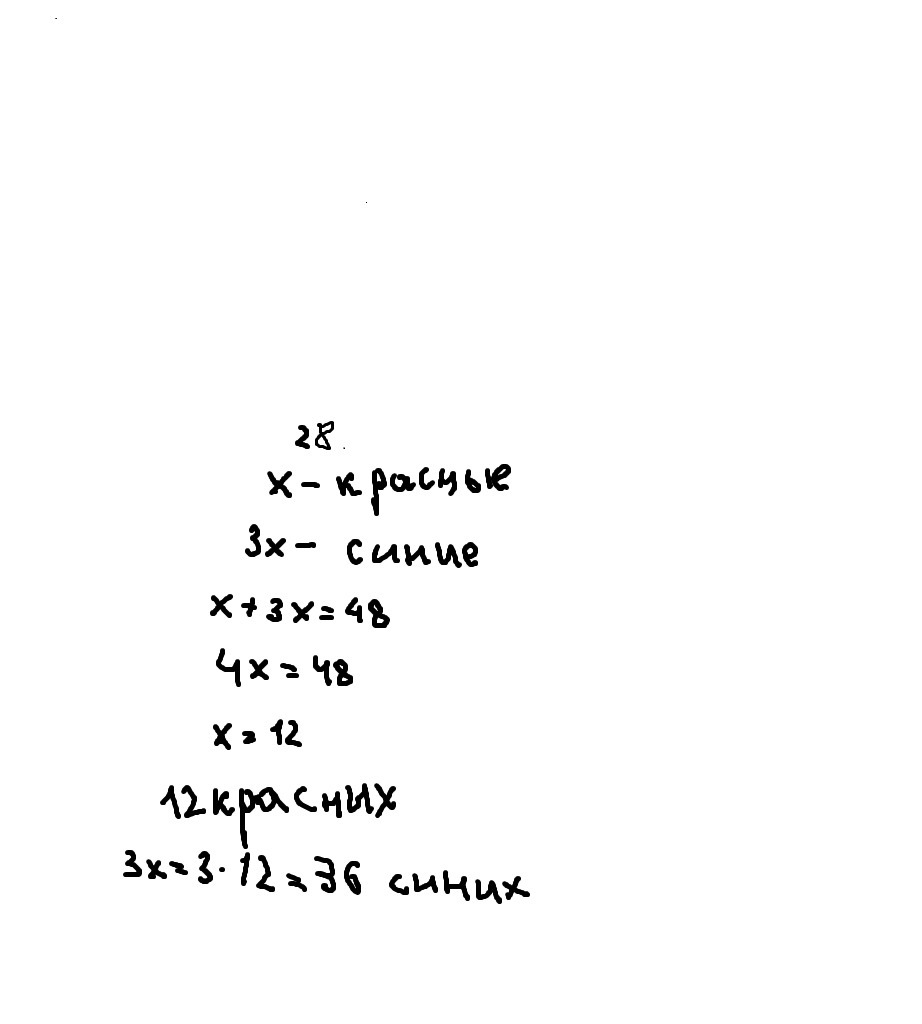 28.
х - красные
3х - синие
х + 3х = 48
4х = 48
х = 12
12 красних
3х = 3 · 12 = 36 синих